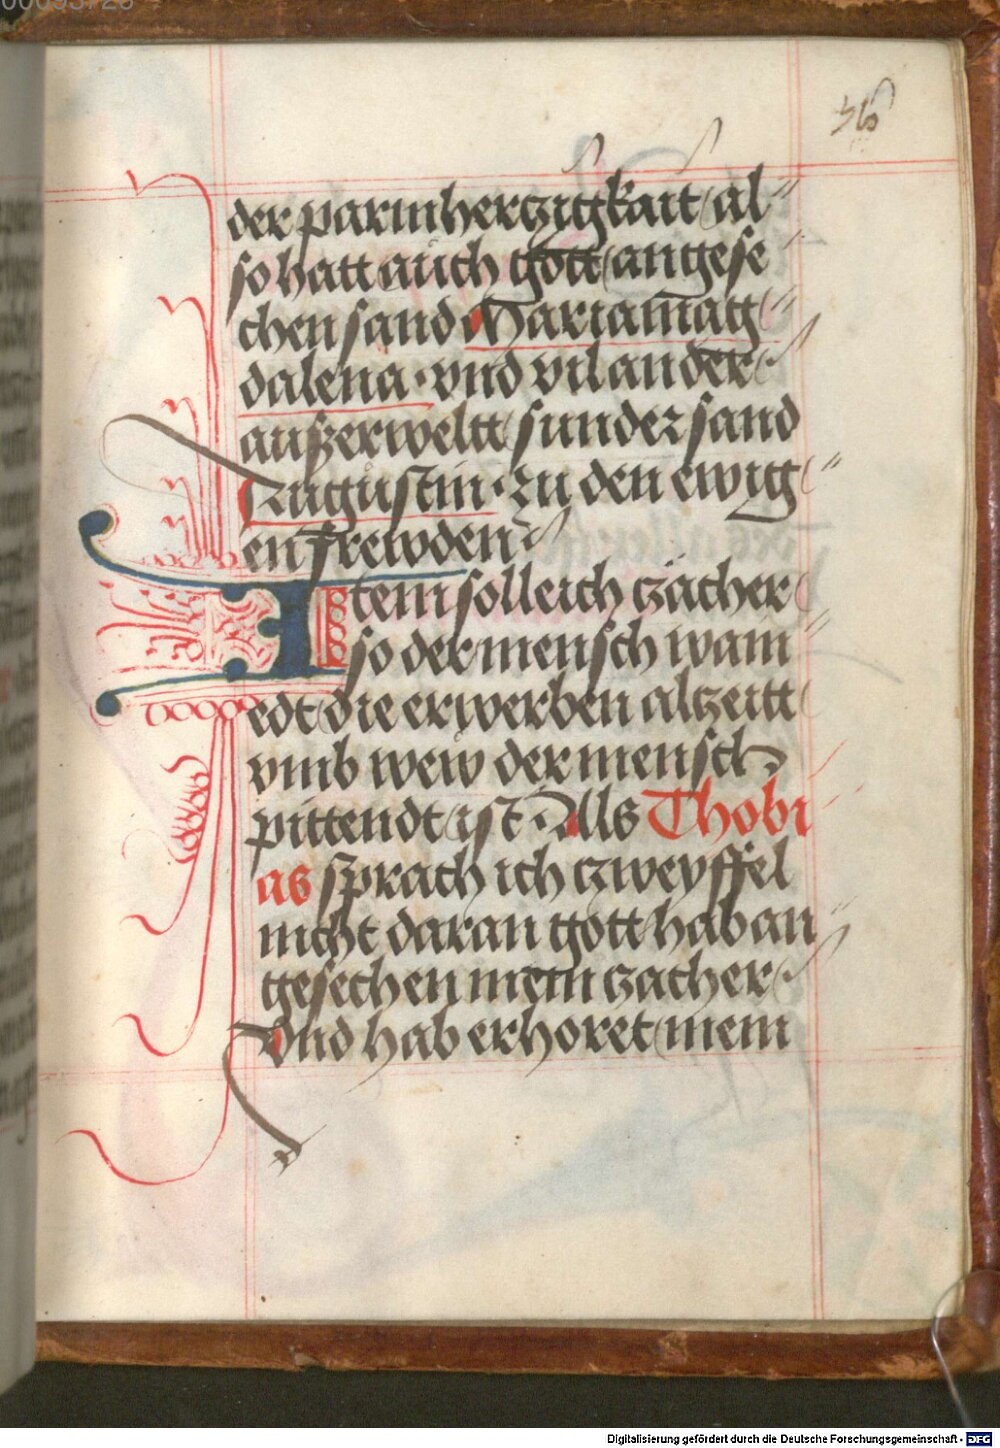 00095726
36
der parmhertzigkait al
so hatt auch gott angese
chen sand Mariamag
dalena · vnd vil ander
außerweltt sunder sand
Augustin · zu den ewig
en frewden
Item solleich zächer
so der mensch wain
edt die erwerben alzeitt
vmb wew der mensch
pittendt ist · Alls Thobi
as sprach ich czweyffel
nicht daran gott hab an
gesechen mein zächer
Vnd hab erhoret mein
Digitalisierung gefördert durch die Deutsche Forschungsgemeinschaft - DFG